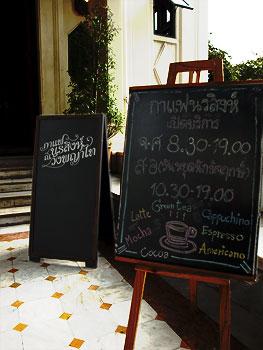 กาแฟ
นรสิงห์
ณ
วังพญาไท
กาแฟนรสิงห์
เปิดบริการ
จ-ศ 8.30-19.00
ส-อ (วันหยุดนักขัตฤกษ์)
10.30-19.00
Green tea
Latte Cappuchino
Mocha Espresso
Cocoa Americano